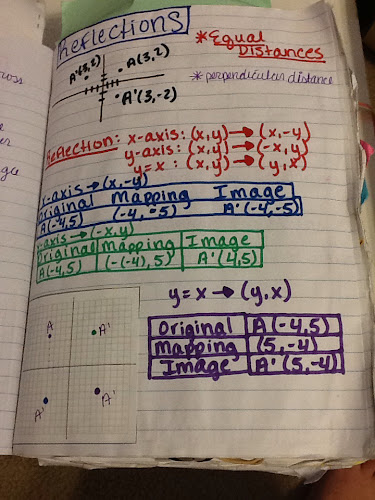 Reflections
* Equal Distances
* perpendicular distance
A'(3,2) A(3,2)
A'(3,-2)
Reflection: x-axis: (x,y) → (x,-y)
y-axis: (x,y) → (-x,y)
y=x : (x,y) → (y,x)
x-axis → (x,-y)
Original Mapping Image
A(-4,5) (-4,-5) A'(-4,-5)
-axis → (-x,y)
Original Mapping Image
A(-4,5) (-(-4),5) A'(4,5)
y=x → (y,x)
Original A(-4,5)
Mapping (5,-4)
Image A'(5,-4)
A A'
A' A'